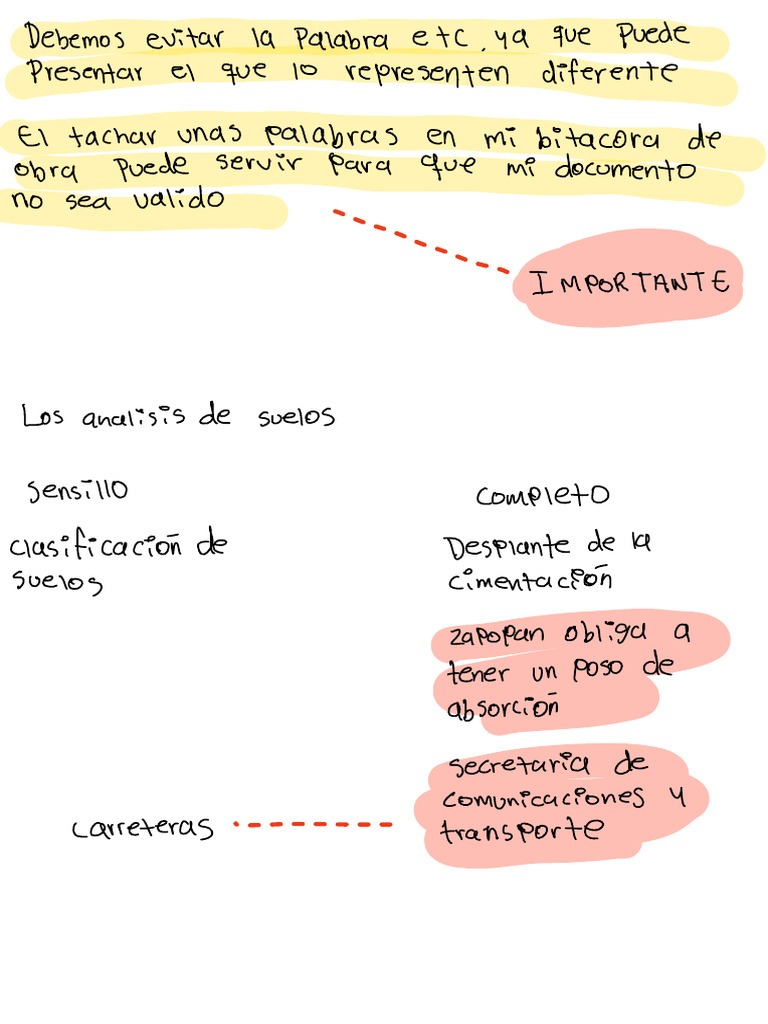 Debemos evitar la palabra etc, ya que puede
Presentar el que lo representen diferente
El tachar unas palabras en mi bitacora de
obra puede servir para que mi documento
no sea valido
IMPORTANTE
Los analisis de suelos
sensillo
completo
clasificación de
suelos
Desplante de la
cimentación
zapopan obliga a
tener un poso de
absorción
secretaria de
comunicaciones y
transporte
carreteras